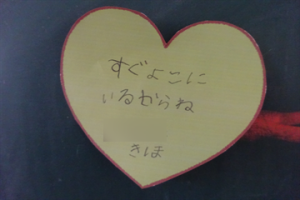 すぐよこに
いるからね
きほ